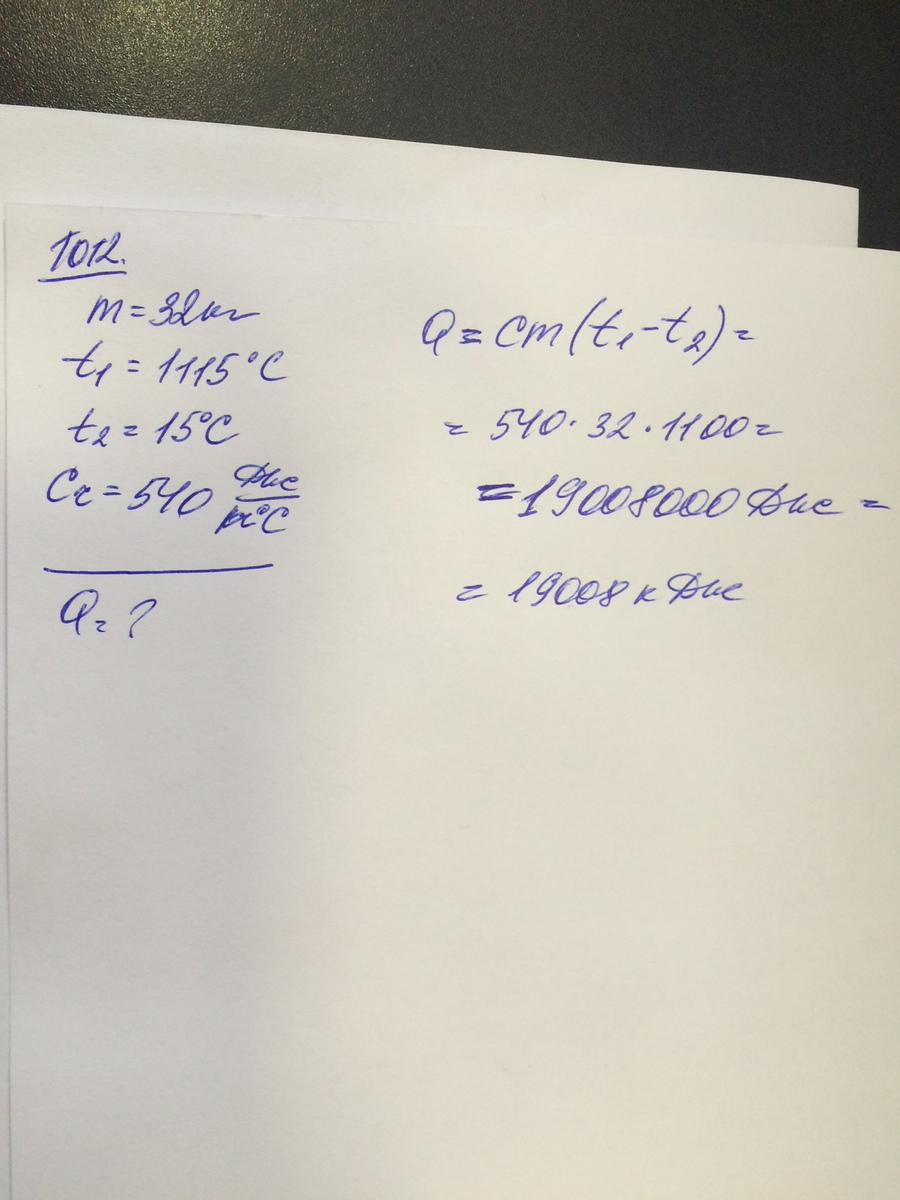 1012.
m = 32 кг
t₁ = 1115°C
t₂ = 15°C
Cг = 540 Дж/кг°C
Q = ?
Q = cm(t₁ - t₂) =
= 540 · 32 · 1100 =
= 19008000 Дж =
= 19008 кДж